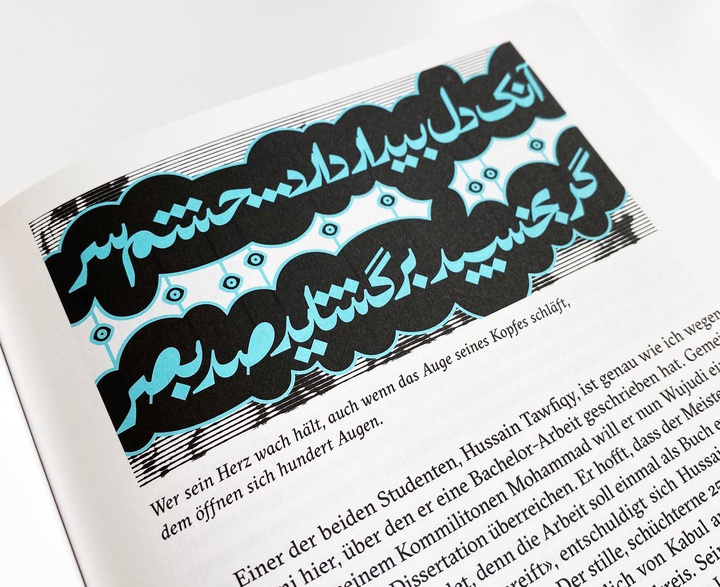 آنک دل بیدار دارد چشم سر
گر بخسپد برگشاید صد بصر
Wer sein Herz wach hält, auch wenn das Auge seines Kopfes schläft,
dem öffnen sich hundert Augen.
Einer der beiden Studenten, Hussain Tawfiqy, ist genau wie ich wegen
hier, über den er eine Bachelor-Arbeit geschrieben hat.
einem Kommilitonen Mohammad will er nun Wujudi
Dissertation überreichen. Er hofft, dass der Meister
denn die Arbeit soll einmal als Buch
entschuldigt sich Hussain
Der stille, schüchterne
von Kabul